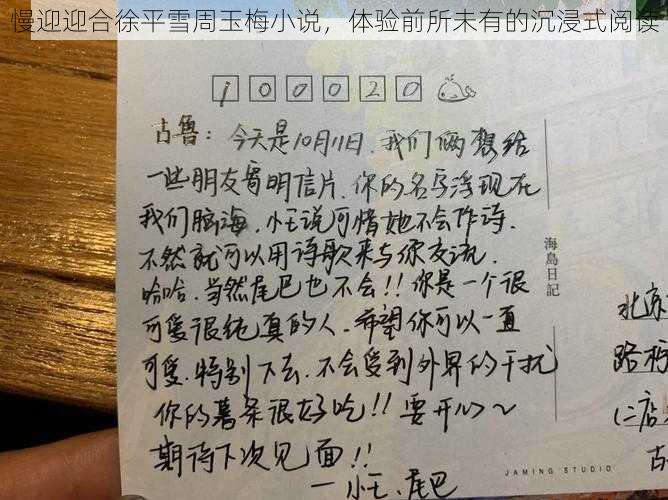 慢迎迎合徐平雪周玉梅小说，体验前所未有的沉浸式阅读
100020
古鲁：今天是10月11日，我们俩想给
一些朋友寄明信片，你的名字浮现在
我们脑海，小王说可惜她不会作诗，
不然就可以用诗歌来与你交流，
哈哈，当然尾巴也不会!! 你是一个很
可爱很纯真的人，希望你可以一直
可爱，特别下去，不会受到外界的干扰
你的薯条很好吃!! 要开心~
期待下次见面!!
—小王、尾巴
海島日記
北京
路
(二店
古
JAMING STUDIO